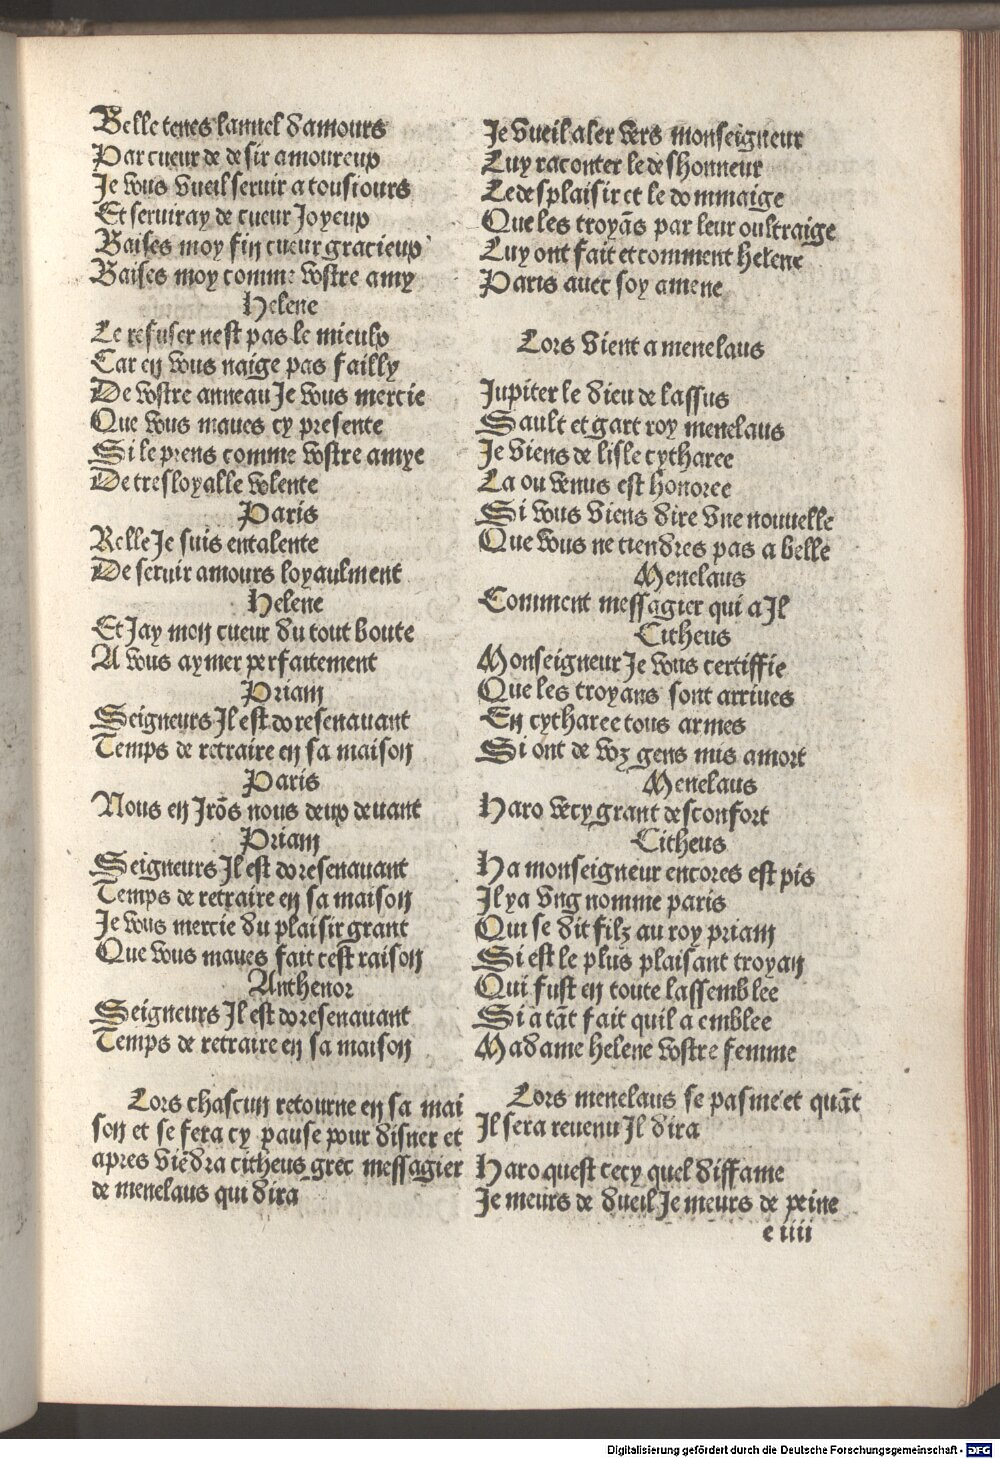 Belle tenes lannel damours
Par cueur de desir amoureux
Je vous vueil seruir a tousiours
Et seruiray de cueur Joyeux
Baises moy fin cueur gracieux
Baises moy comme vostre amy
Helene
Le refuser nest pas le mieulx
Car en vous naige pas failly
De vostre anneau Je vous mercie
Que vous maues cy presente
Si le prens comme vostre amye
De tresloyalle volente
Paris
Relle Je suis entalente
De seruir amours loyaulment
Helene
Et Jay mon cueur du tout boute
A vous aymer perfaitement
Priam
Seigneurs Il est doresenauant
Temps de retraire en sa maison
Paris
Nous en Jrōs nous deux deuant
Priam
Seigneurs Il est doresenauant
Temps de retraire en sa maison
Je vous mercie du plaisir grant
Que vous maues fait cest raison
Anthenor
Seigneurs Il est doresenauant
Temps de retraire en sa maison
Lors chascun retourne en sa mai
son et se fera cy pause pour disner et
apres viēdra citheus grec messagier
de menelaus qui dira
Je vueil aler vers monseigneur
Luy raconter le deshonneur
Le desplaisir et le dommaige
Que les troyās par leur oultraige
Luy ont fait et comment helene
Paris auec soy amene
Lors vient a menelaus
Jupiter le dieu de lassus
Sault et gart roy menelaus
Je viens de lisle cytharee
La ou venus est honoree
Si vous viens dire vne nouuelle
Que vous ne tiendres pas a belle
Menelaus
Comment messagier qui a Il
Citheus
Monseigneur Je vous certiffie
Que les troyans sont arriues
En cytharee tous armes
Si ont de voz gens mis a mort
Menelaus
Haro vecy grant desconfort
Citheus
Ha monseigneur encores est pis
Il ya vng nomme paris
Qui se dit filz au roy priam
Si est le plus plaisant troyan
Qui fust en toute lassemblee
Si a tāt fait quil a emblee
Madame helene vostre femme
Lors menelaus se pasme et quāt
Il sera reuenu Il dira
Haro quest cecy quel diffame
Je meurs de dueil Je meurs de peine
e iiii
Digitalisierung gefördert durch die Deutsche Forschungsgemeinschaft - DFG